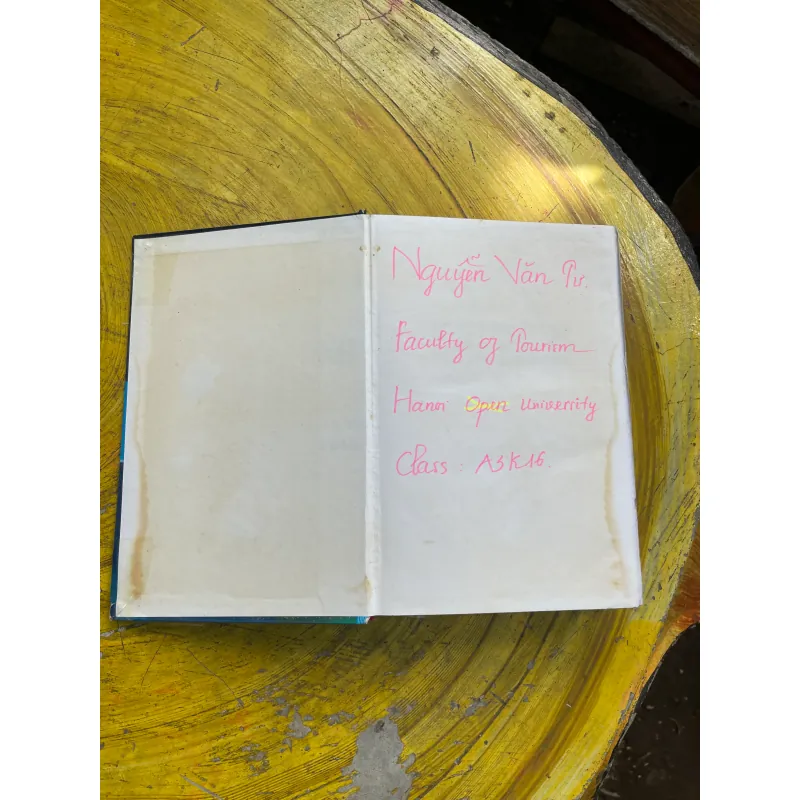 Nguyễn Văn Tư.
Faculty of Tourism
Hanoi Open University
Class : A3K16.